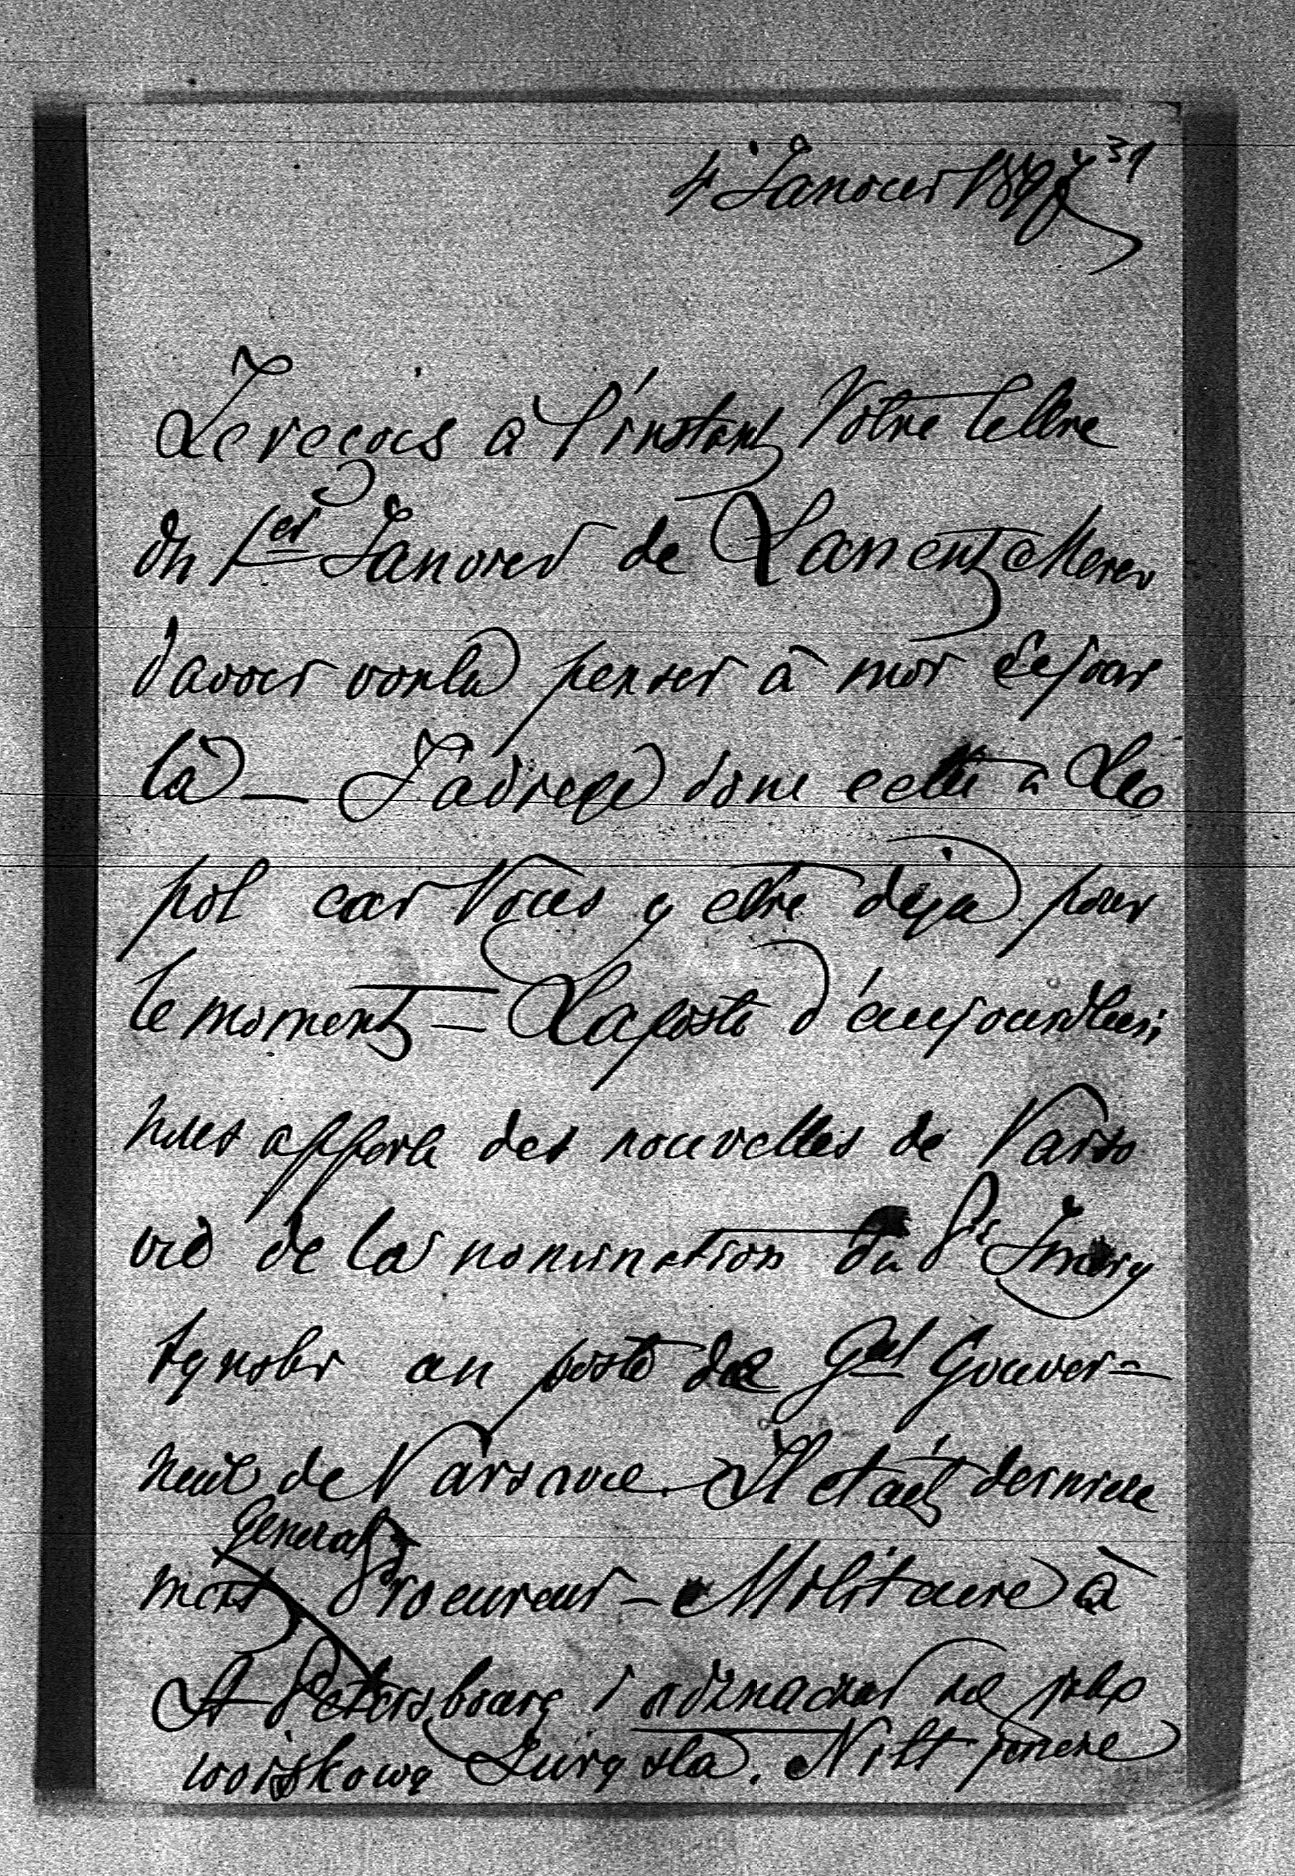 31
4 Janvier 1897
Je reçois à l'instant Votre lettre
du 1er Janvier de Lancut Merci
d'avoir voulu penser à moi ce jour
là — J'adresse donc cette à Léo
pol car Vous y etre déja pour
le moment — La poste d'aujourdhui
nous apporte des nouvelles de Varso
vie de la nomination du Pce Imery
tynski au poste de Gal Gouver=
neur de Varsovie Il etait derniere
ment General Procureur-Militaire à
St Petersbourg i odznaczał się jako
wojskowy Jurysta. Nikt jeszcze